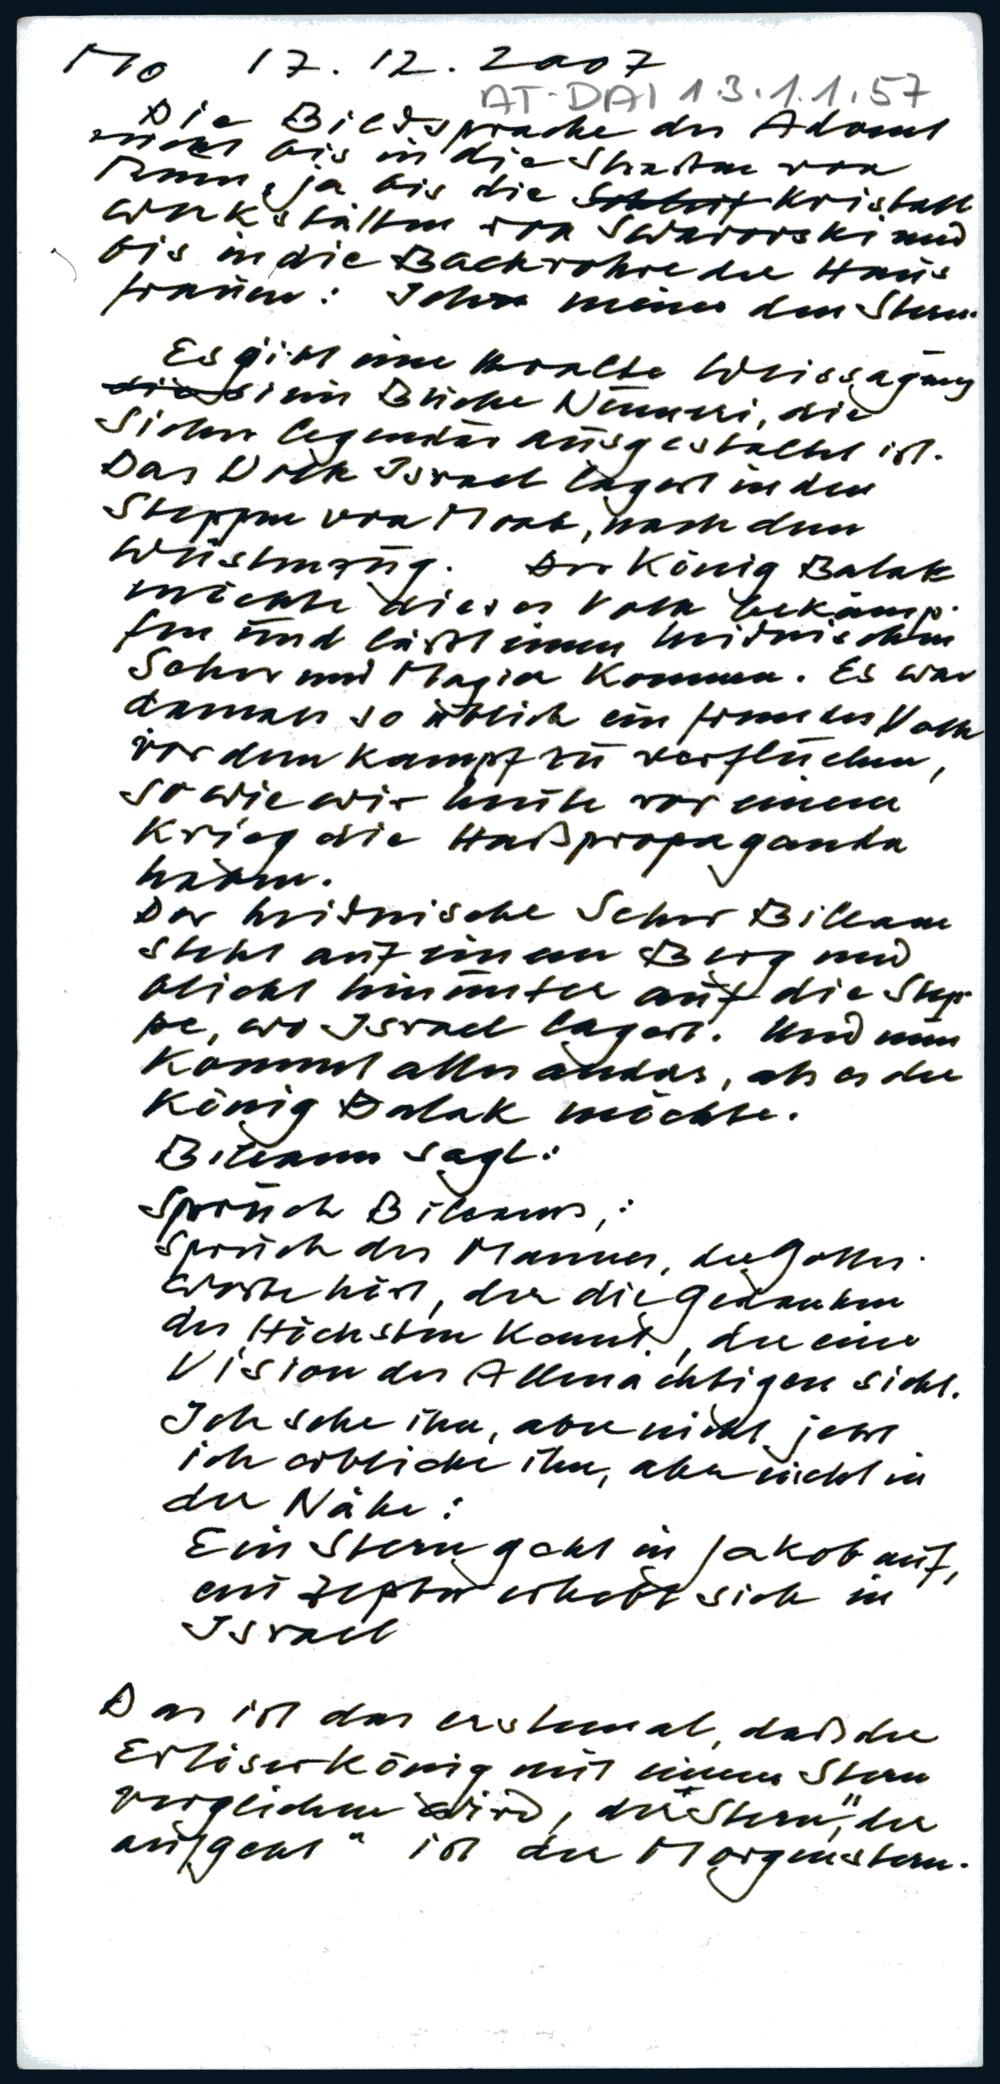 Mo 17.12.2007
AT-DAI 1.3.1.1.57
Die Bildsprache des Advent
reicht bis in die Strassen von
ja bis die Schleif Kristall
werkstätten von Swarovski und
bis in die Backrohre der Haus
frauen: Ich meine den Stern.
Es gibt eine uralte Weissagung
die im Buche Numeri, die
sicher legendär ausgestaltet ist.
Das Volk Israel lagert in den
Steppen von Moab, nach dem
Wüstenzug. Der König Balak
möchte dieses Volk bekämp-
fen und läßt einen heidnischen
Seher und Magier kommen. Es war
damals so üblich ein fremdes Volk
vor dem Kampf zu verfluchen,
so wie wir heute vor einem
Krieg die Haßpropaganda
haben.
Der heidnische Seher Bileam
steht auf einem Berg und
blickt hinunter auf die Step-
pe, wo Israel lagert. Und nun
kommt alles anders, als es der
König Balak möchte.
Bileam sagt:
Spruch Bileams,:
Spruch des Mannes, der Gottes-
worte hört, der die Gedanken
des Höchsten kennt, der eine
Vision des Allmächtigen sieht.
Ich sehe ihn, aber nicht jetzt
ich erblicke ihn, aber nicht in
der Nähe:
Ein Stern geht in Jakob auf,
ein Zepter erhebt sich in
Israel
Das ist das erstemal, daß der
Erlöserkönig mit einem Stern
verglichen wird, der "Stern", der
aufgeht" ist der Morgenstern.